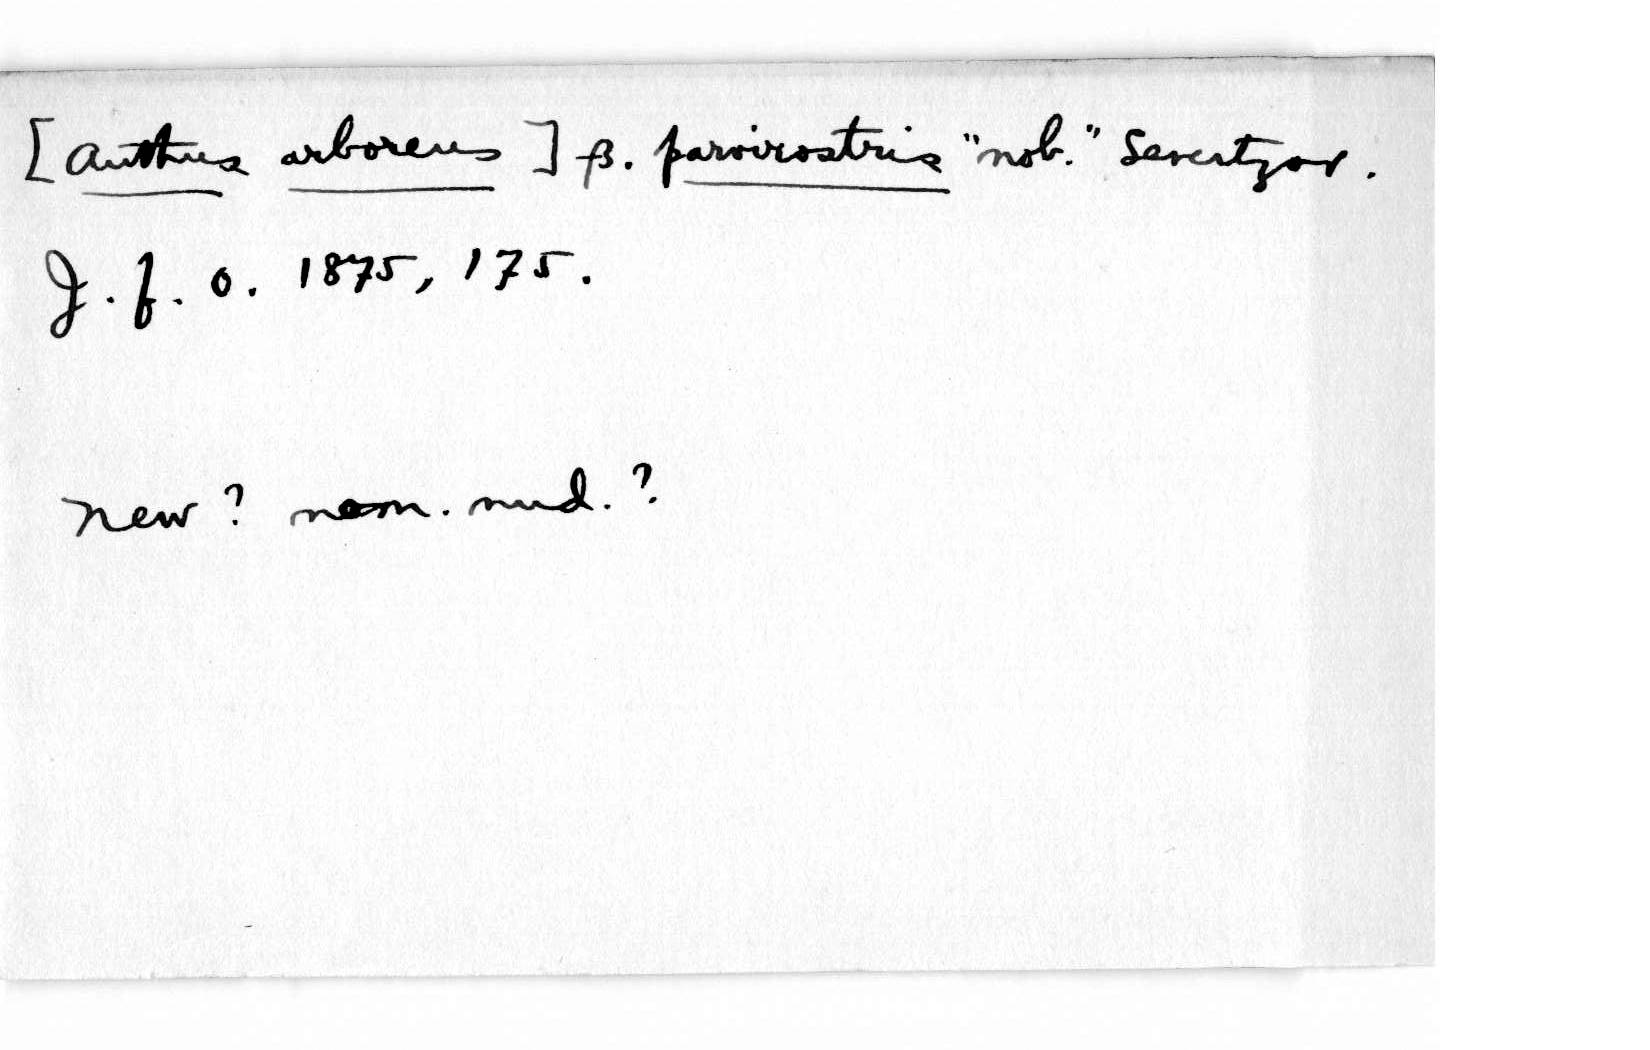 [Anthus arboreus] β. parvirostris "nob." Severtzov.
J. f. O. 1875, 175.
New? nom. nud.?